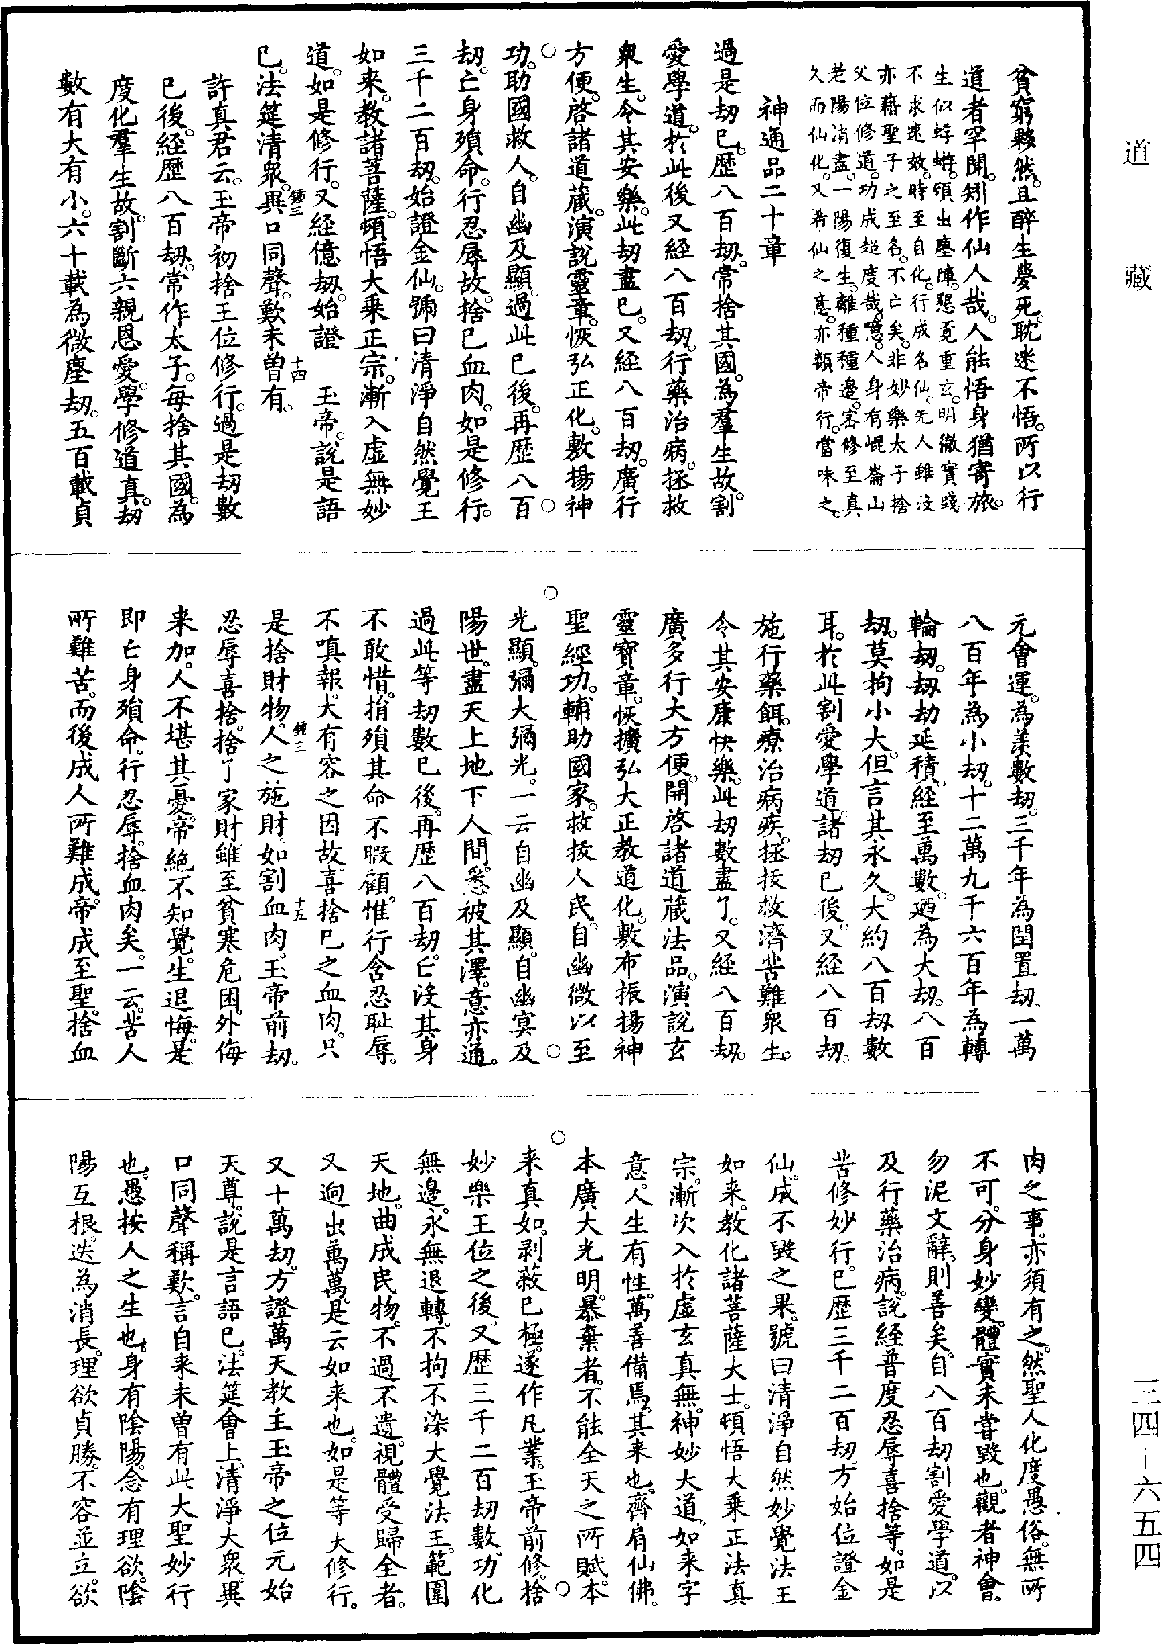 道藏
三四-六五四
貧窮夥然且醉生夢死耽迷不悟所以行
道者罕聞矧作仙人哉人能悟身猶寄旅
生似蜉蝣頓出塵陣懇覓重玄明徹實踐
不求速效時至自化行成名仙先人雖沒
亦藉聖子之至名不亡矣非妙樂太子捨
父位修道功成超度哉噫人身有崐崙山
若陽消盡一陽復生離種種邊密修至真
久而仙化又希仙之意亦類帝行當味之
神通品二十章
過是劫已歷八百劫常捨其國為羣生故割
愛學道於此後又經八百劫行藥治病拯救
衆生令其安樂此劫盡已又經八百劫廣行
方便啓諸道藏演說靈章恢弘正化敷揚神
功助國救人自幽及顯過此已後再歷八百
劫亡身殞命行忍辱故捨已血肉如是修行
三千二百劫始證金仙號曰清淨自然覺王
如来教諸菩薩頓悟大乘正宗漸入虛無妙
道如是修行又經億劫始證　玉帝說是語
已法筵清衆異口同聲歎未曾有
許真君云玉帝初捨王位修行過是劫數
已後經歷八百劫常作太子每捨其國為
度化羣生故割斷六親恩愛學修道真劫
數有大有小六十載為微塵劫五百載貞
元會運為差數劫三千年為閏置劫一萬
八百年為小劫十二萬九千六百年為轉
輪劫劫劫延積經至萬數廼為大劫八百
劫莫拘小大但言其永久大約八百劫數
耳於此割愛學道諸劫已後又經八百劫
施行藥餌療治病疾拯拔救濟苦難衆生
令其安康快樂此劫數盡了又經八百劫
廣多行大方便開啓諸道藏法品演說玄
靈寶章恢擴弘大正教道化敷布振揚神
聖經功輔助國家救拔人民自幽微以至
光顯彌大彌光一云自幽及顯自幽冥及
陽世盡天上地下人間悉被其澤意亦通
過此等劫數已後再歷八百劫亡沒其身
不敢惜捐殞其命不暇顧惟行含忍耻辱
不嗔報犬有容之因故喜捨已之血肉只
是捨財物人之施財如割血肉玉帝前劫
忍辱喜捨捨了家財雖至貧寒危困外侮
来加人不堪其憂帝絕不知覺生退悔是
即亡身殞命行忍辱捨血肉矣一云苦人
所難苦而後成人所難成帝成至聖捨血
肉之事亦須有之然聖人化度愚俗無所
不可分身妙變體實未嘗毀也觀者神會
勿泥文辭則善矣自八百劫割愛學道以
及行藥治病說經普度忍辱喜捨等如是
苦修妙行已歷三千二百劫方始位證金
仙成不毀之果號曰清淨自然妙覺法王
如来教化諸菩薩大士頓悟大乘正法真
宗漸次入於虛玄真無神妙大道如来字
意人生有性萬善備焉其来也齊肩仙佛
本廣大光明暴棄者不能全天之所賦本
来真如剥蔽已極遂作凡業玉帝前修捨
妙樂王位之後又歷三千二百劫數功化
無邊永無退轉不拘不染大覺法王範圍
天地曲成民物不過不遺視體受歸全者
又迥出萬萬是云如来也如是等大修行
又十萬劫方證萬天教主玉帝之位元始
天尊說是言語已法筵會上清淨大衆異
口同聲稱歎言自来未曾有此大聖妙行
也愚按人之生也身有陰陽念有理欲陰
陽互根迭為消長理欲貞勝不容並立欲